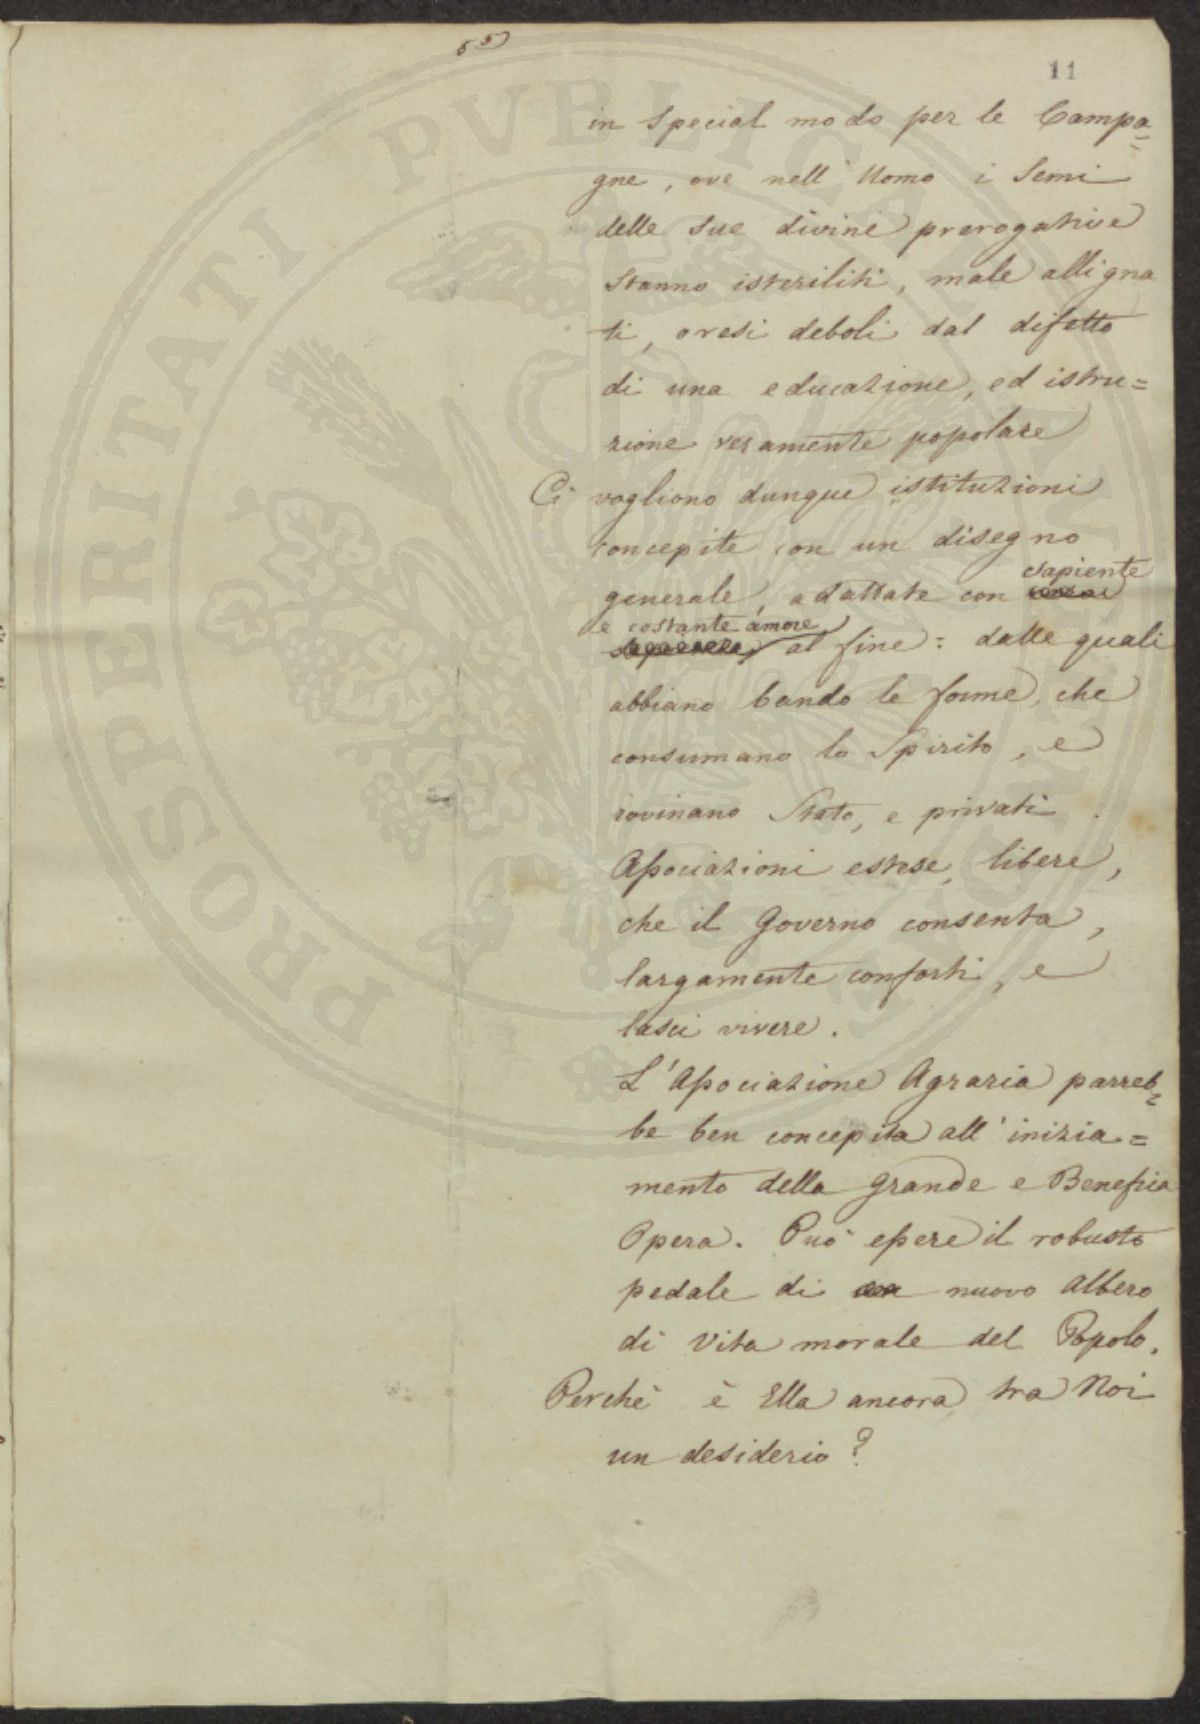 55
11
in Special modo per le Campa=
gne, ove nell'Uomo i Semi
delle Sue divine prerogative
Stanno isteriliti, male alligna
ti, o resi deboli dal difetto
di una educazione, ed istru=
zione veramente popolare
Ci vogliono dunque istituzioni
concepite con un disegno
sapiente
generale, adattate con
e costante amore
al fine: dalle quali
abbiano bando le forme, che
consumano lo Spirito, e
rovinano Stato, e privati.
Associazioni estese, libere,
che il Governo consenta,
largamente conforti, e
lasci vivere.
L'Associazione Agraria parreb=
be ben concepita all'inizia=
mento della grande e Benefica
Opera. Può essere il robusto
pedale di nuovo albero
di Vita morale del Popolo.
Perchè è Ella ancora tra Noi
un desiderio?
PROSPERITATI PVBLICAE